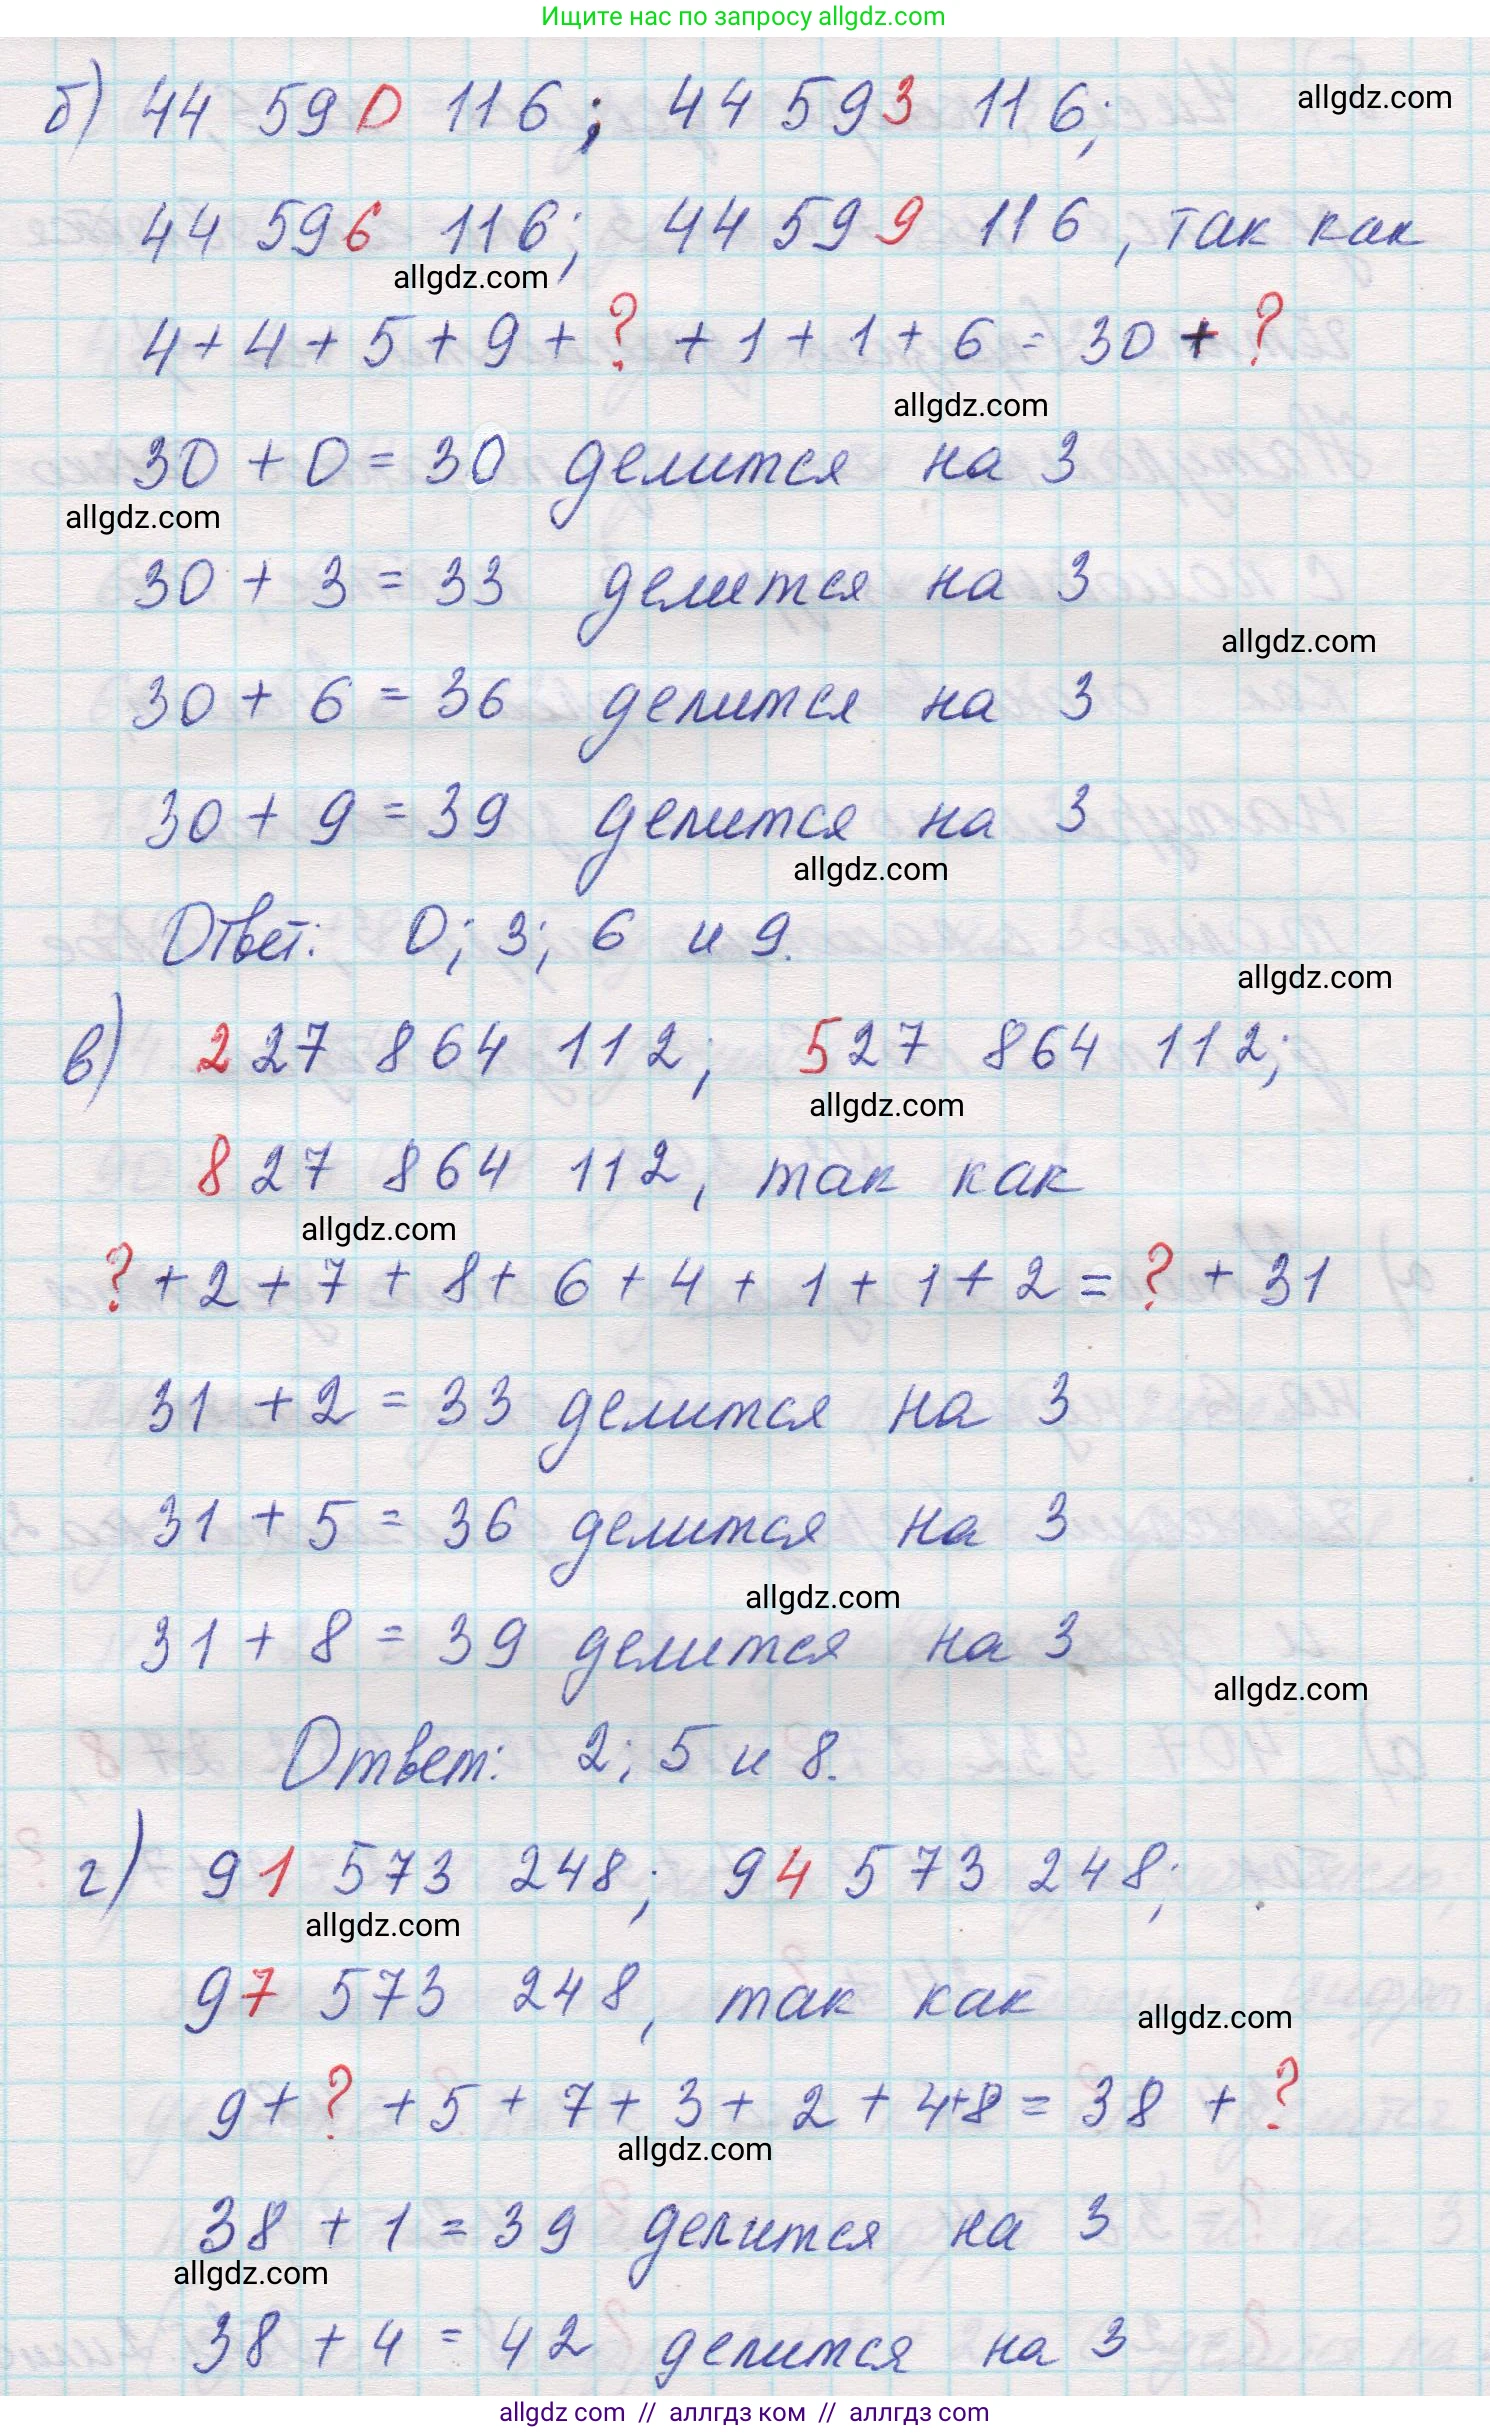 Ищите нас по запросу allgdz.com
б) 44 590 116; 44 593 116;
allgdz.com
44 596 116; 44 599 116, так как
allgdz.com
4 + 4 + 5 + 9 + ? + 1 + 1 + 6 = 30 + ?
allgdz.com
30 + 0 = 30 делится на 3
allgdz.com
30 + 3 = 33 делится на 3
allgdz.com
30 + 6 = 36 делится на 3
30 + 9 = 39 делится на 3
allgdz.com
Ответ: 0; 3; 6 и 9.
allgdz.com
в) 227 864 112; 527 864 112;
allgdz.com
827 864 112, так как
allgdz.com
? + 2 + 7 + 8 + 6 + 4 + 1 + 1 + 2 = ? + 31
31 + 2 = 33 делится на 3
31 + 5 = 36 делится на 3
allgdz.com
31 + 8 = 39 делится на 3
allgdz.com
Ответ: 2; 5 и 8.
г) 91 573 248; 94 573 248;
allgdz.com
97 573 248, так как
allgdz.com
9 + ? + 5 + 7 + 3 + 2 + 4 + 8 = 38 + ?
allgdz.com
38 + 1 = 39 делится на 3
allgdz.com
38 + 4 = 42 делится на 3
allgdz.com // аллгдз ком // аллгдз com